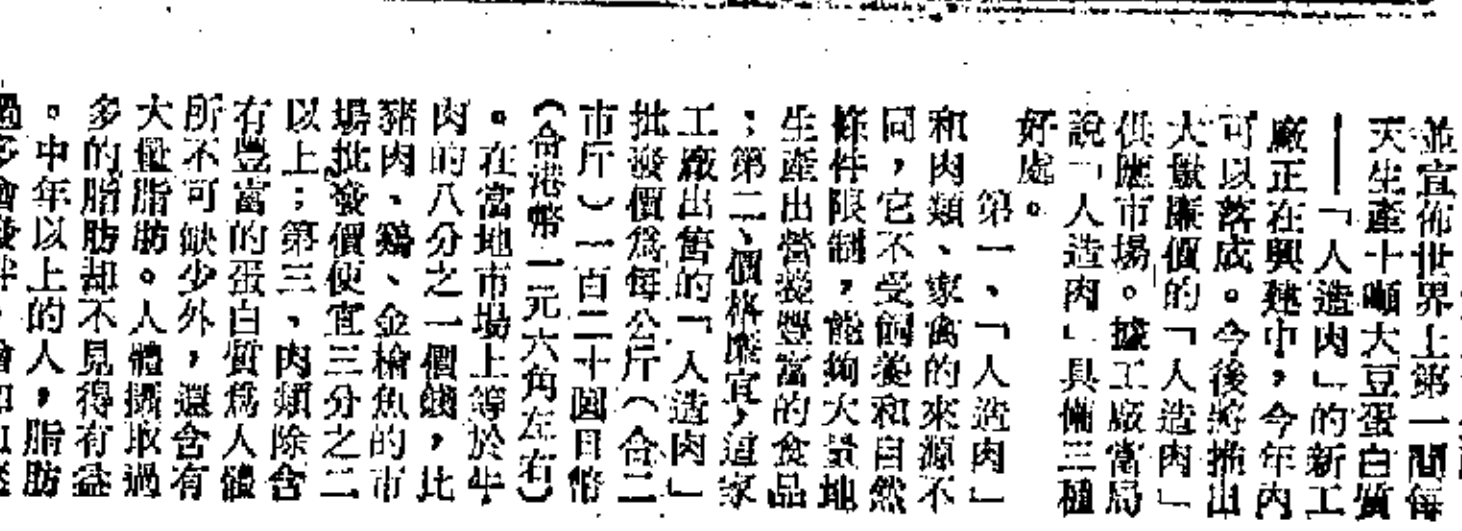 並宣佈世界上第一間每
天生產十噸大豆蛋白質
——「人造肉」的新工
廠正在興建中，今年內
可以落成。今後將推出
大量廉價的「人造肉」
供應市場。據工廠當局
說「人造肉」具備三種
好處。
第一、「人造肉」
和肉類、家禽的來源不
同，它不受飼養和自然
條件限制，能夠大量地
生產出營養豐富的食品
；第二、價格廉宜，這家
工廠出售的「人造肉」
批發價爲每公斤（合二
市斤）一百二十圓日幣
（合港幣二元六角左右）
。在當地市場上等於牛
肉的八分之一價錢，比
豬肉、鷄、金槍魚的市
場批發價便宜三分之二
以上；第三、肉類除含
有豐富的蛋白質爲人體
所不可缺少外，還含有
大量脂肪。人體攝取過
多的脂肪却不見得有益
。中年以上的人，脂肪
過多會發胖，會